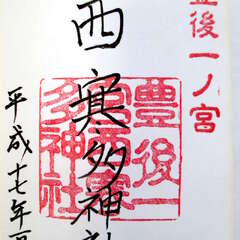 豊後一ノ宮
豊後一
宮西寒
多神社
西寒多神社
平成十七年